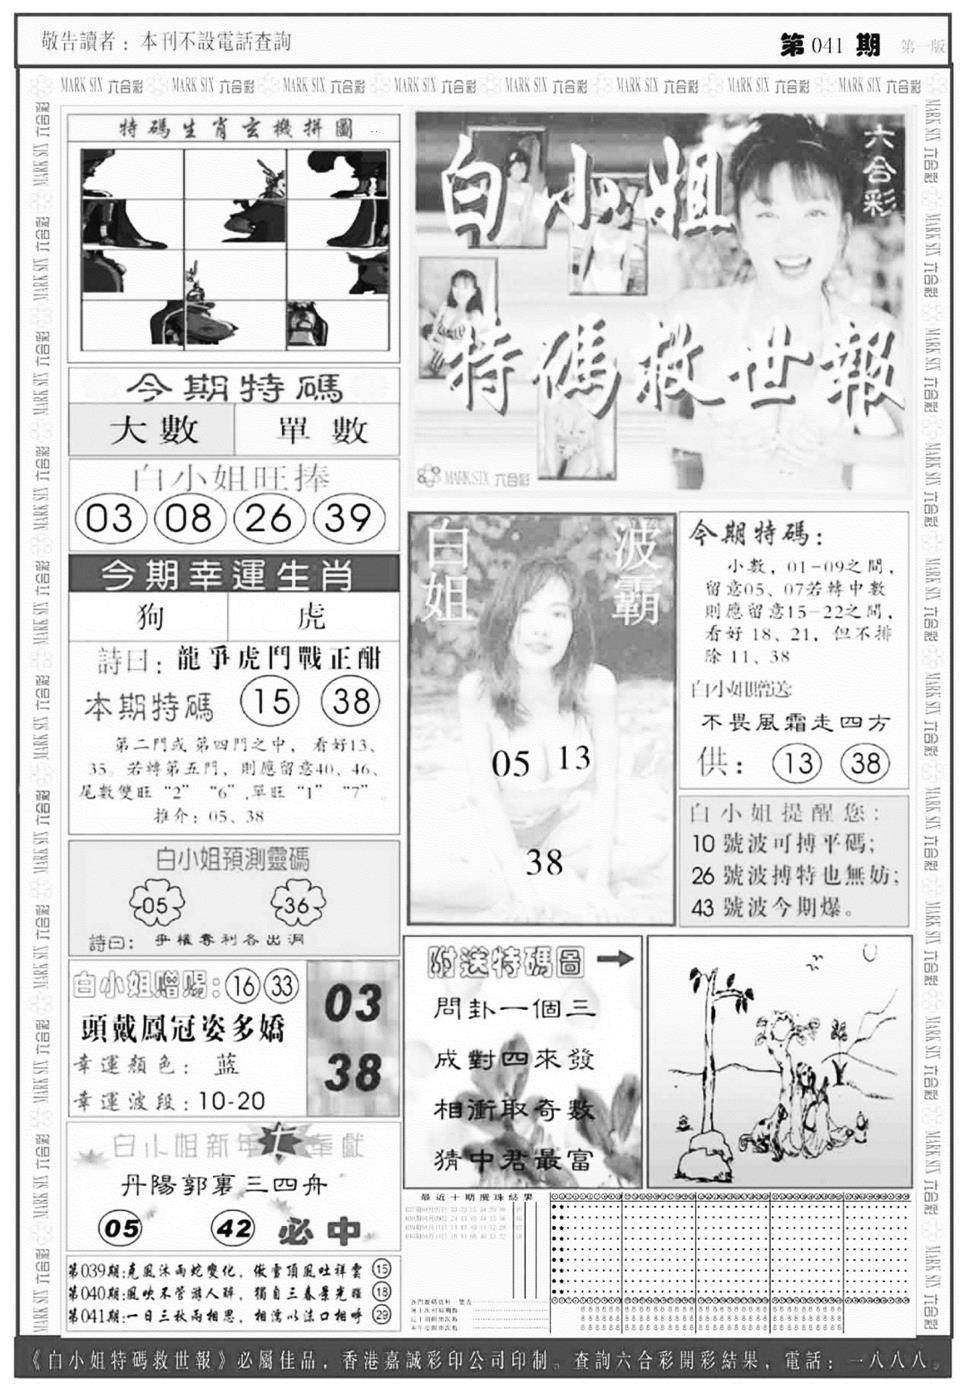 敬告讀者：本刊不設電話查詢
第 041 期
第一版
MARK SIX 六合彩 MARK SIX 六合彩 MARK SIX 六合彩 MARK SIX 六合彩 MARK SIX 六合彩 MARK SIX 六合彩 MARK SIX 六合彩 MARK SIX 六合彩
特碼生肖玄機拼圖
今期特碼
大數 單數
白小姐旺捧
03 08 26 39
今期幸運生肖
狗 虎
詩曰：龍爭虎鬥戰正酣
本期特碼 15 38
第二門或第四門之中，看好13、
35。若轉第五門，則應留意40、46、
尾數雙旺“2” “6”,單旺“1” “7”。
推介：05、38
白小姐預測靈碼
05 36
詩曰：爭權奪利各出洞
白小姐贈賜：16 33
頭戴鳳冠姿多嬌
幸運顏色：蓝
幸運波段：10-20
03
38
白小姐新年奉獻
丹陽郭裏三四舟
05 42 必中
第039期:克風沐雨蛇變化，傲雪頂風吐祥雲 15
第040期:風吹不管游人醉，獨自三春景光 18
第041期:一日三秋兩相思，相濡以沫口相呼 29
白小姐
六合彩
特碼救世報
MARK SIX 六合彩
白姐
波霸
05 13
38
今期特碼：
小數，01-09之間，
留意05、07若轉中數
則應留意15-22之間，
看好18、21，但不排
除 11、38
白小姐贈送
不畏風霜走四方
供：13 38
白小姐提醒您：
10 號波可搏平碼；
26 號波搏特也無妨；
43 號波今期爆。
附送特碼圖
問卦一個三
成對四來發
相衝取奇數
猜中君最富
最近十期攪珠結果
《白小姐特碼救世報》必屬佳品，香港嘉誠彩印公司印制。查詢六合彩開彩結果，電話：一八八八。